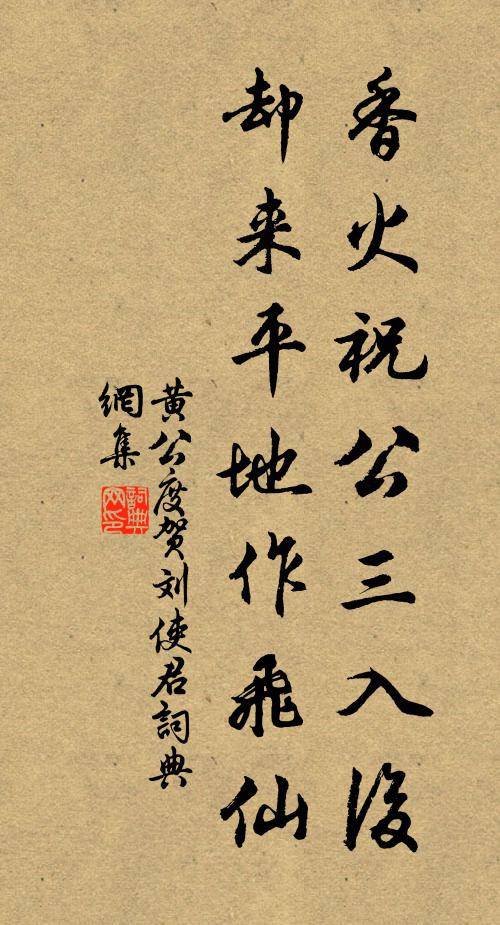 香火祝公三入後
却来平地作飛仙
黄公度贺刘使君詞典
網集
詞典
网印